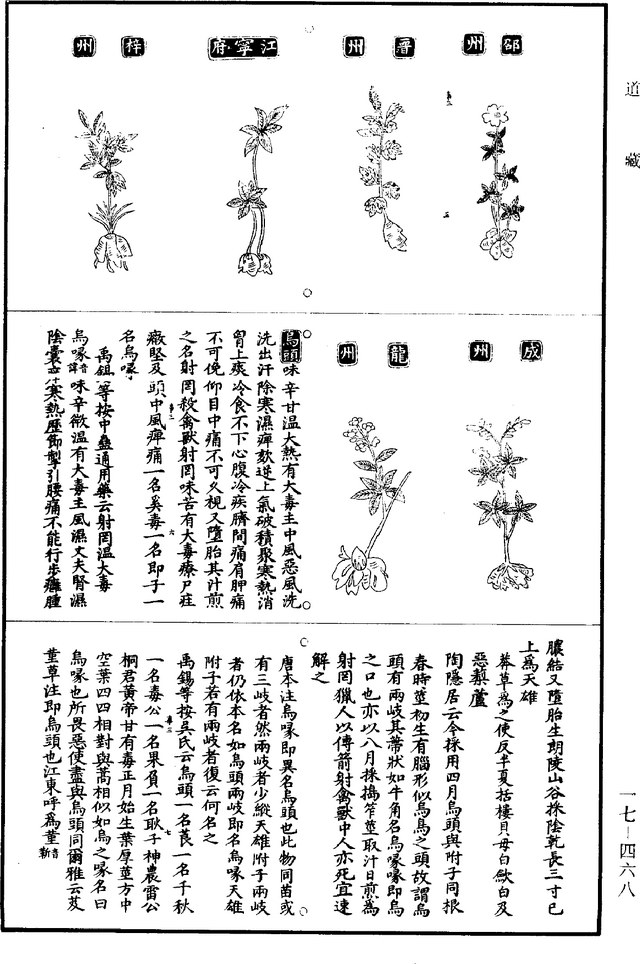 道藏
邵州
晋州
江寧府
梓州
成州
龍州
烏頭味辛甘温大熱有大毒主中風惡風洗
洗出汗除寒濕痺欬逆上氣破積聚寒熱消
胷上痰冷食不下心腹冷疾臍間痛肩胛痛
不可俛仰目中痛不可久視又墮胎其汁煎
之名射罔殺禽獸射罔味苦有大毒療尸疰
癥堅及頭中風痺痛一名奚毒一名即子一
名烏喙
禹錫等按中蠱通用藥云射罔温大毒
烏喙音諱味辛微温有大毒主風濕丈夫腎濕
陰囊癢寒熱歷節掣引腰痛不能行步癰腫
膿結又墮胎生朗陵山谷採陰乾長三寸已
上爲天雄
莽草爲之使反半夏栝樓貝母白斂白及
惡藜蘆
陶隱居云今採用四月烏頭與附子同根
春時莖初生有腦形似烏鳥之頭故謂烏
頭有兩岐其蔕狀如牛角名烏喙喙即烏
之口也亦以八月採搗笮莖取汁日煎爲
射罔獵人以傅箭射禽獸中人亦死宜速
解之
唐本注烏喙即異名烏頭也此物同苗或
有三岐者然兩岐者少縱天雄附子兩岐
者仍依本名如烏頭兩岐即名烏喙天雄
附子若有兩岐者復云何名之
禹錫等按吳氏云烏頭一名茛一名千秋
一名毒公一名果負一名耿子神農雷公
桐君黄帝甘有毒正月始生葉厚莖方中
空葉四四相對與蒿相似如烏之喙名曰
烏喙也所畏惡使盡與烏頭同爾雅云芨
堇草注即烏頭也江東呼爲堇音靳
一七—四六八